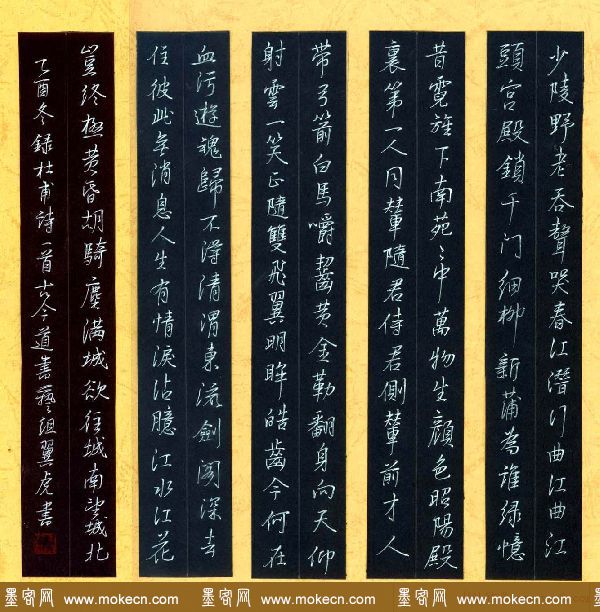 少陵野老吞聲哭春江潛行曲江曲江
頭宮殿鎖千门細柳新蒲為誰綠憶
昔霓旌下南苑々中萬物生顏色昭陽殿
裏第一人同輦隨君侍君側輦前才人
带弓箭白馬嚼齧黄金勒翻身向天仰
射雲一笑正隨雙飛翼明眸皓齒今何在
血污遊魂歸不得清渭東流劍阁深去
住彼此無消息人生有情淚沾臆江水江花
豈終極黄昏胡騎塵滿城欲往城南望城北
乙酉冬録杜甫詩一首古今道書藝組翼虎書
墨客网 www.mokecn.com 墨客网 www.mokecn.com 墨客网 www.mokecn.com